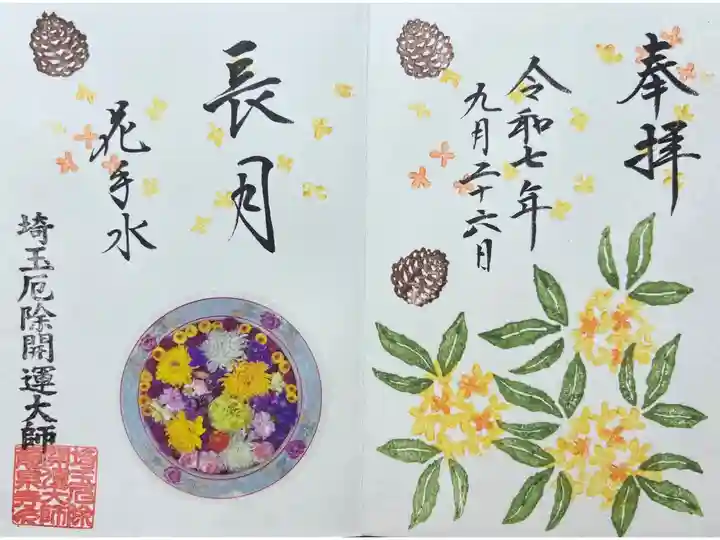 奉拝
令和七年
九月二十六日
長月
花手水
埼玉厄除開運大師
埼玉厄除
開運大師